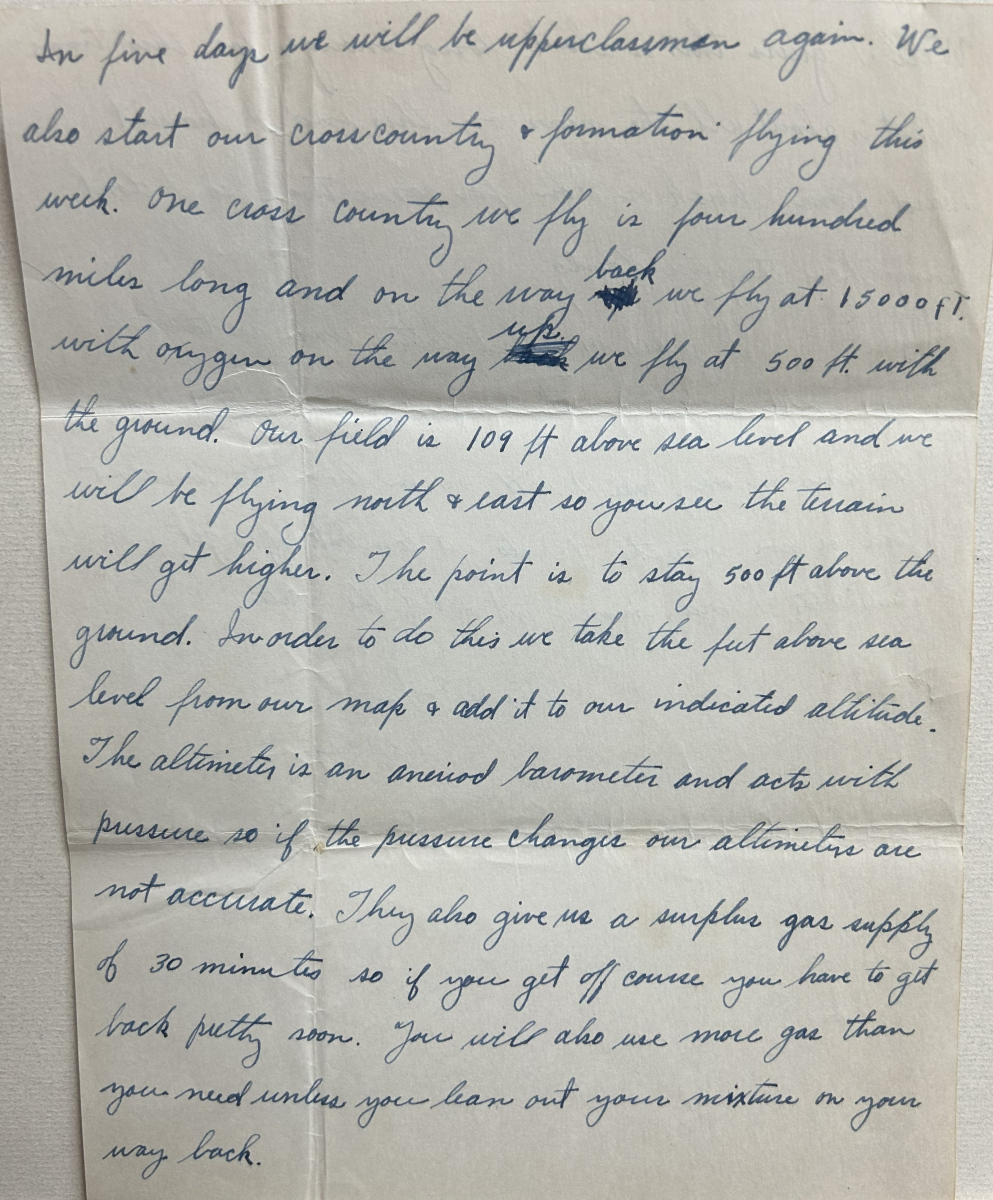 In five days we will be upperclassman again. We
also start our crosscountry & formation flying this
week. One cross country we fly is four hundred
miles long and on the way back we fly at 15000 fT.
with oxygen on the way up we fly at 500 ft. with
the ground. Our field is 109 ft above sea level and we
will be flying north & east so you see the terrain
will get higher. The point is to stay 500 ft above the
ground. In order to do this we take the feet above sea
level from our map & add it to our indicated altitude.
The altimeter is an aneriod barometer and acts with
pressure so if the pressure changes our altimeters are
not accurate. They also give us a surplus gas supply
of 30 minutes so if you get off course you have to get
back pretty soon. You will also use more gas than
you need unless you lean out your mixture on your
way back.